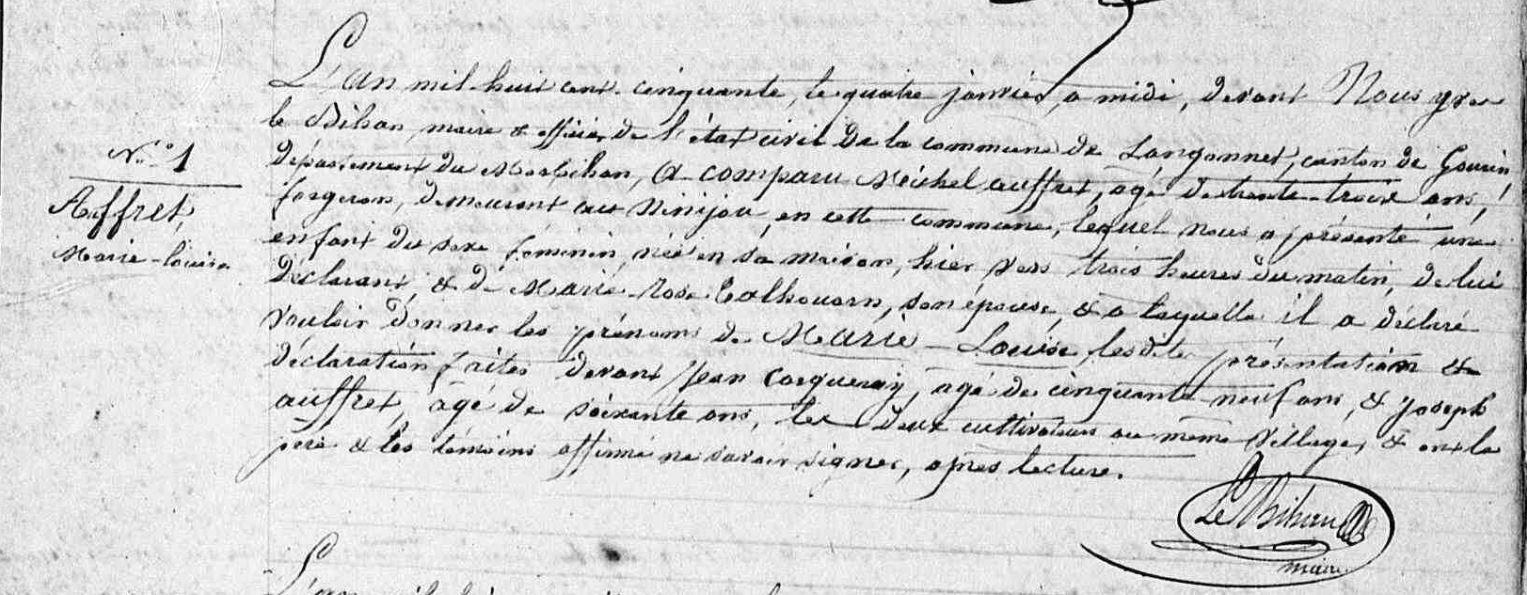 L'an mil huit cent cinquante, le quatre janvier, a midi, devant Nous yves
le Bihan, maire & officier de l'état civil de la commune de Langonnet, canton de Gourin,
N.o 1
département du Morbihan, a comparu Michel auffret, agé de trente-trois ans,
Auffret,
forgeron, demeurant au Minijou, en cette commune, lequel nous a présenté une
Marie-louise
enfant du sexe feminin, née en sa maison, hier, vers trois heures du matin, de lui
déclarant, & de Marie-Rose Calhouarn, son épouse, & a laquelle il a déclaré
vouloir donner les prénoms de Marie-Louise, lesdites présentation &
déclaration faites devant Jean Cosqueray, agé de cinquante-neuf ans, & Joseph
auffret, agé de soixante ans, les deux cultivateurs au même village, & ont le
père & les témoins affirmé ne savoir signer, après lecture.
Le Bihan
maire
L'an mil